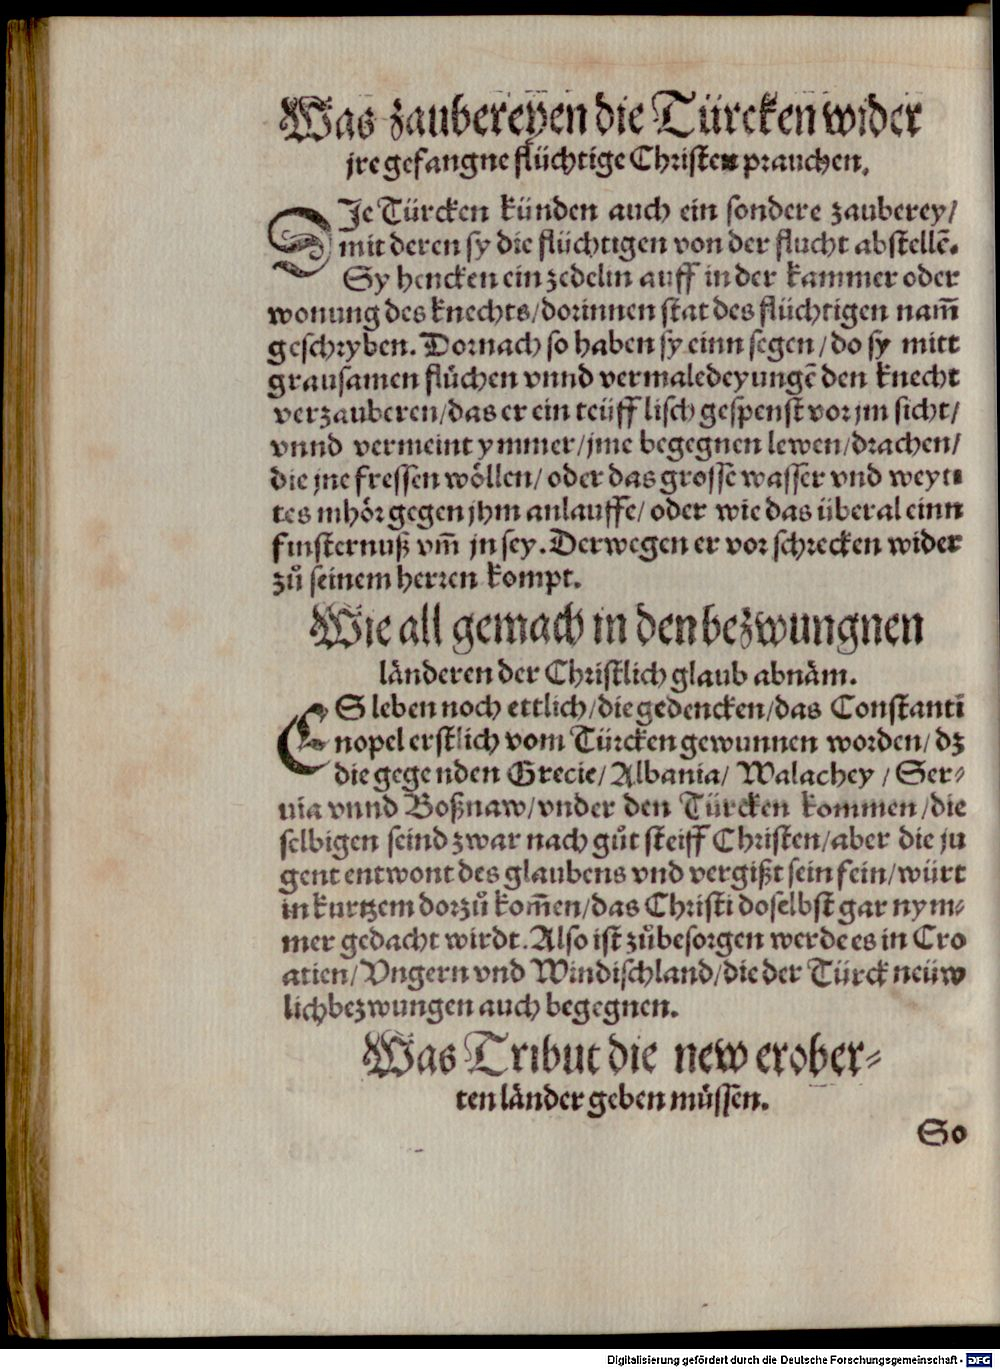 Was zaubereyen die Türcken wider
jre gefangne flüchtige Christen prauchen.
DJe Türcken künden auch ein sondere zauberey/
mit deren sy die flüchtigen von der flucht abstellē.
Sy hencken ein zedelin auff in der kammer oder
wonung des knechts/dorinnen stat des flüchtigen nam̃
geschryben. Dornach so haben sy einn segen/do sy mitt
grausamen flůchen vnnd vermaledeyungē den knecht
verzauberen/das er ein teüfflisch gespenst vor jm sicht/
vnnd vermeint ymmer/jme begegnen lewen/drachen/
die jne fressen wöllen/oder das grosse wasser vnd weyt-
tes mhör gegen jhm anlauffe/oder wie das überal einn
finsternuß vm̃ jn sey. Derwegen er vor schrecken wider
zů seinem herren kompt.
Wie all gemach in den bezwungnen
länderen der Christlich glaub abnäm.
ES leben noch ettlich/die gedencken/das Constanti
nopel erstlich vom Türcken gewunnen worden/dz
die gegenden Grecie/Albania/Walachey/Ser-
uia vnnd Boßnaw/vnder den Türcken kommen/die
selbigen seind zwar nach gůt steiff Christen/aber die ju
gent entwont des glaubens vnd vergißt sein fein/würt
in kurtzem dorzů kom̃en/das Christi doselbst gar nym-
mer gedacht wirdt. Also ist zůbesorgen werde es in Cro
atien/Vngern vnd Windischland/die der Türck neüw
lich bezwungen auch begegnen.
Was Tribut die new erober-
ten länder geben müssen.
So
Digitalisierung gefördert durch die Deutsche Forschungsgemeinschaft - DFG